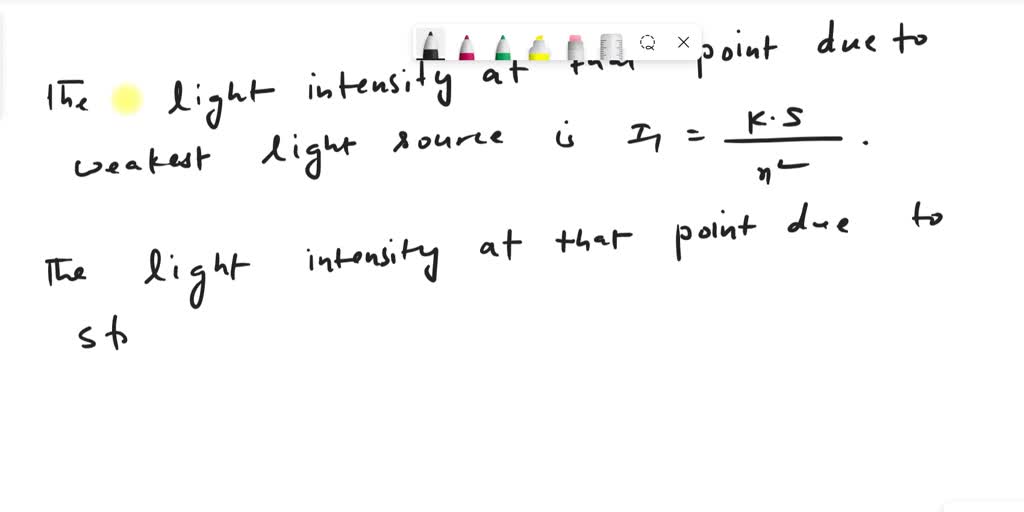 The light intensity at that point due to
weakest light source is I1 = K·S / x².
The light intensity at that point due to
st